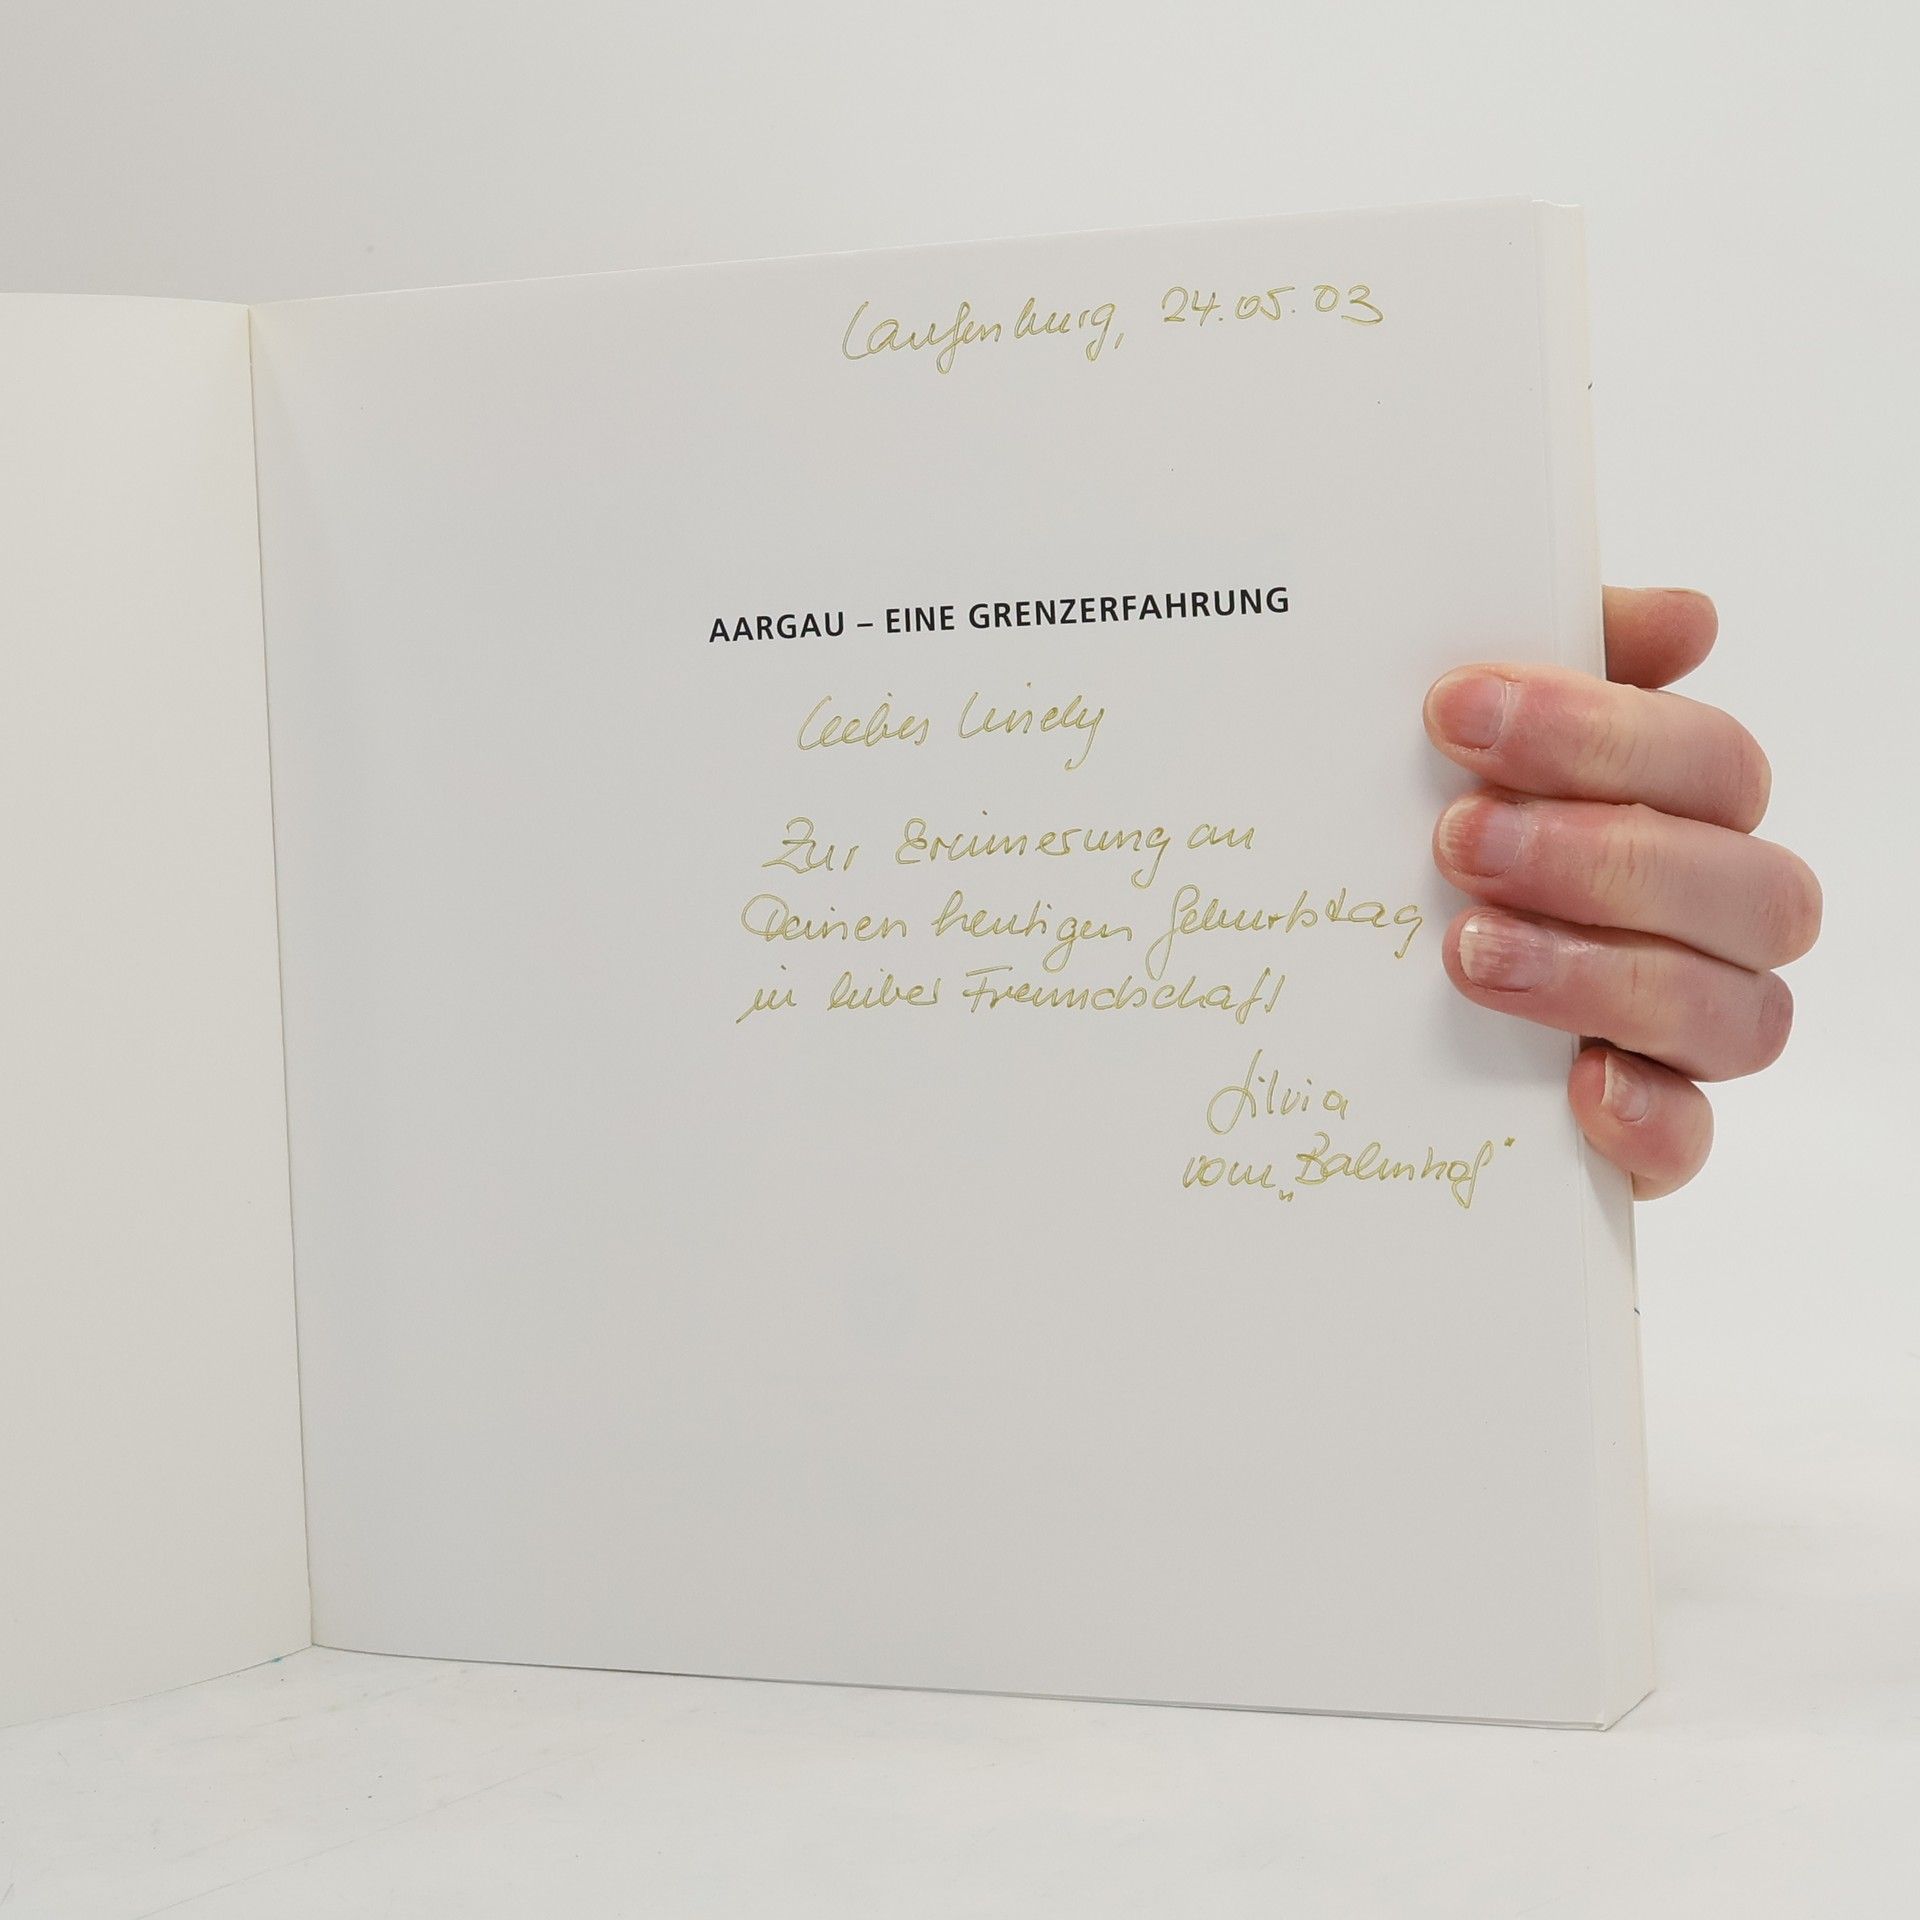 Laufenburg, 24.05.03
AARGAU – EINE GRENZERFAHRUNG
Liebes Lindy
Zur Erinnerung an
Deinen heutigen Geburtstag
in lieber Freundschaft
Silvia
vom „Bahnhof"